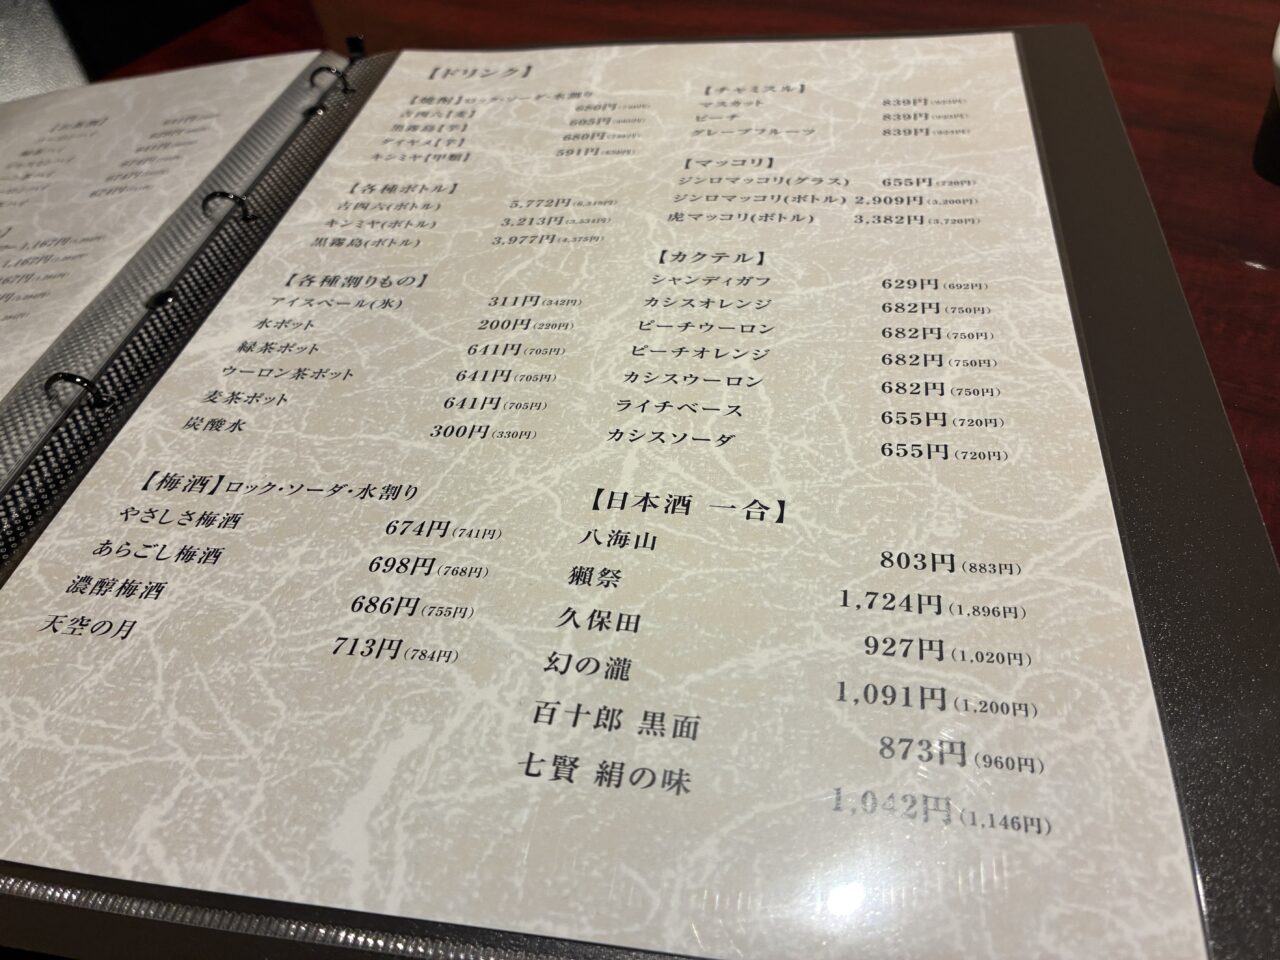 【ドリンク】
【焼酎】ロック・ソーダ・水割り
吉四六【麦】 680円
黒霧島【芋】 605円
ダイヤメ【芋】 680円
キンミヤ【甲類】 591円
【各種ボトル】
吉四六(ボトル) 5,772円
キンミヤ(ボトル) 3,213円(3,534円)
黒霧島(ボトル) 3,977円(4,375円)
【各種割りもの】
アイスペール(氷) 311円(342円)
水ポット 200円(220円)
緑茶ポット 641円(705円)
ウーロン茶ポット 641円(705円)
麦茶ポット 641円(705円)
炭酸水 300円(330円)
【梅酒】ロック・ソーダ・水割り
やさしさ梅酒 674円(741円)
あらごし梅酒 698円(768円)
濃醇梅酒 686円(755円)
天空の月 713円(784円)
【チャミスル】
マスカット 839円
ピーチ 839円
グレープフルーツ 839円
【マッコリ】
ジンロマッコリ(グラス) 655円(720円)
ジンロマッコリ(ボトル) 2,909円(3,200円)
虎マッコリ(ボトル) 3,382円(3,720円)
【カクテル】
シャンディガフ 629円(692円)
カシスオレンジ 682円(750円)
ピーチウーロン 682円(750円)
ピーチオレンジ 682円(750円)
カシスウーロン 682円(750円)
ライチベース 655円(720円)
カシスソーダ 655円(720円)
【日本酒 一合】
八海山 803円(883円)
獺祭 1,724円(1,896円)
久保田 927円(1,020円)
幻の瀧 1,091円(1,200円)
百十郎 黒面 873円(960円)
七賢 絹の味 1,042円(1,146円)